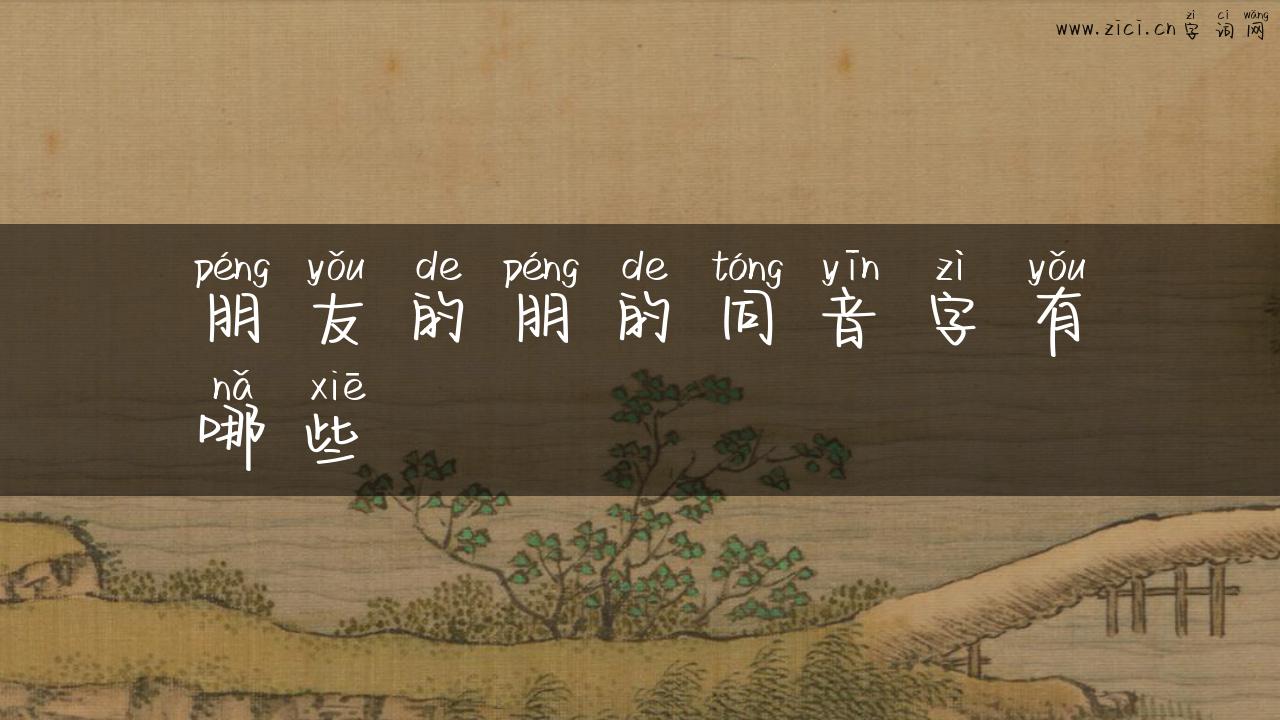 zì cí wǎng
www.zici.cn 字词网
péng yǒu de péng de tóng yīn zì yǒu
朋友的朋的同音字有
nǎ xiē
哪些